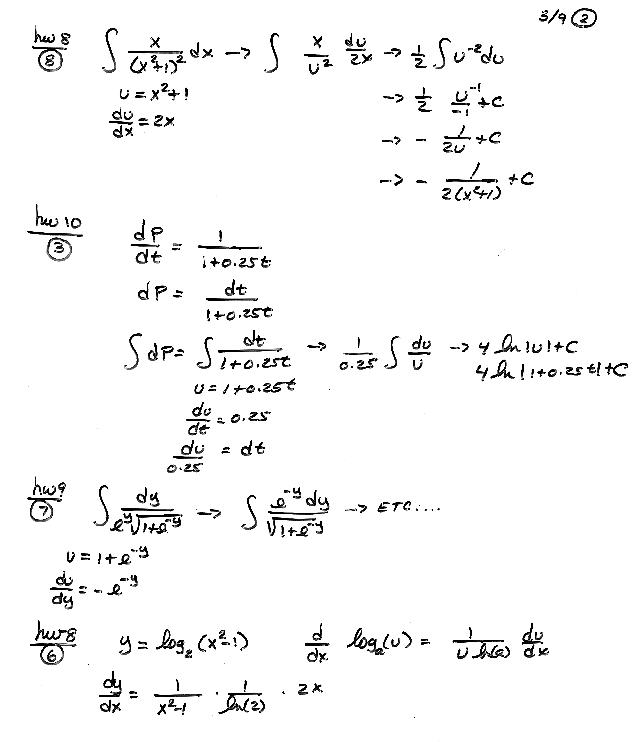 3/9 ②
hw 8 ⑧ ∫ x/(x²+1)² dx -> ∫ x/u² du/2x -> 1/2 ∫ u⁻² du
u = x²+1 -> 1/2 u⁻¹/-1 + C
du/dx = 2x -> - 1/2u + C
-> - 1/2(x²+1) + C
hw 10 ③ dP/dt = 1/1+0.25t
dP = dt/1+0.25t
∫ dP = ∫ dt/1+0.25t -> 1/0.25 ∫ du/u -> 4 ln|u|+C
u = 1+0.25t 4 ln|1+0.25t|+C
du/dt = 0.25
du/0.25 = dt
hw 9 ⑦ ∫ dy/e^y√1+e^-y -> ∫ e^-y dy/√1+e^-y -> ETC....
u = 1+e^-y
du/dy = -e^-y
hw 8 ⑥ y = log₂(x²-1) d/dx logₐ(u) = 1/u ln(a) du/dx
dy/dx = 1/x²-1 · 1/ln(2) · 2x